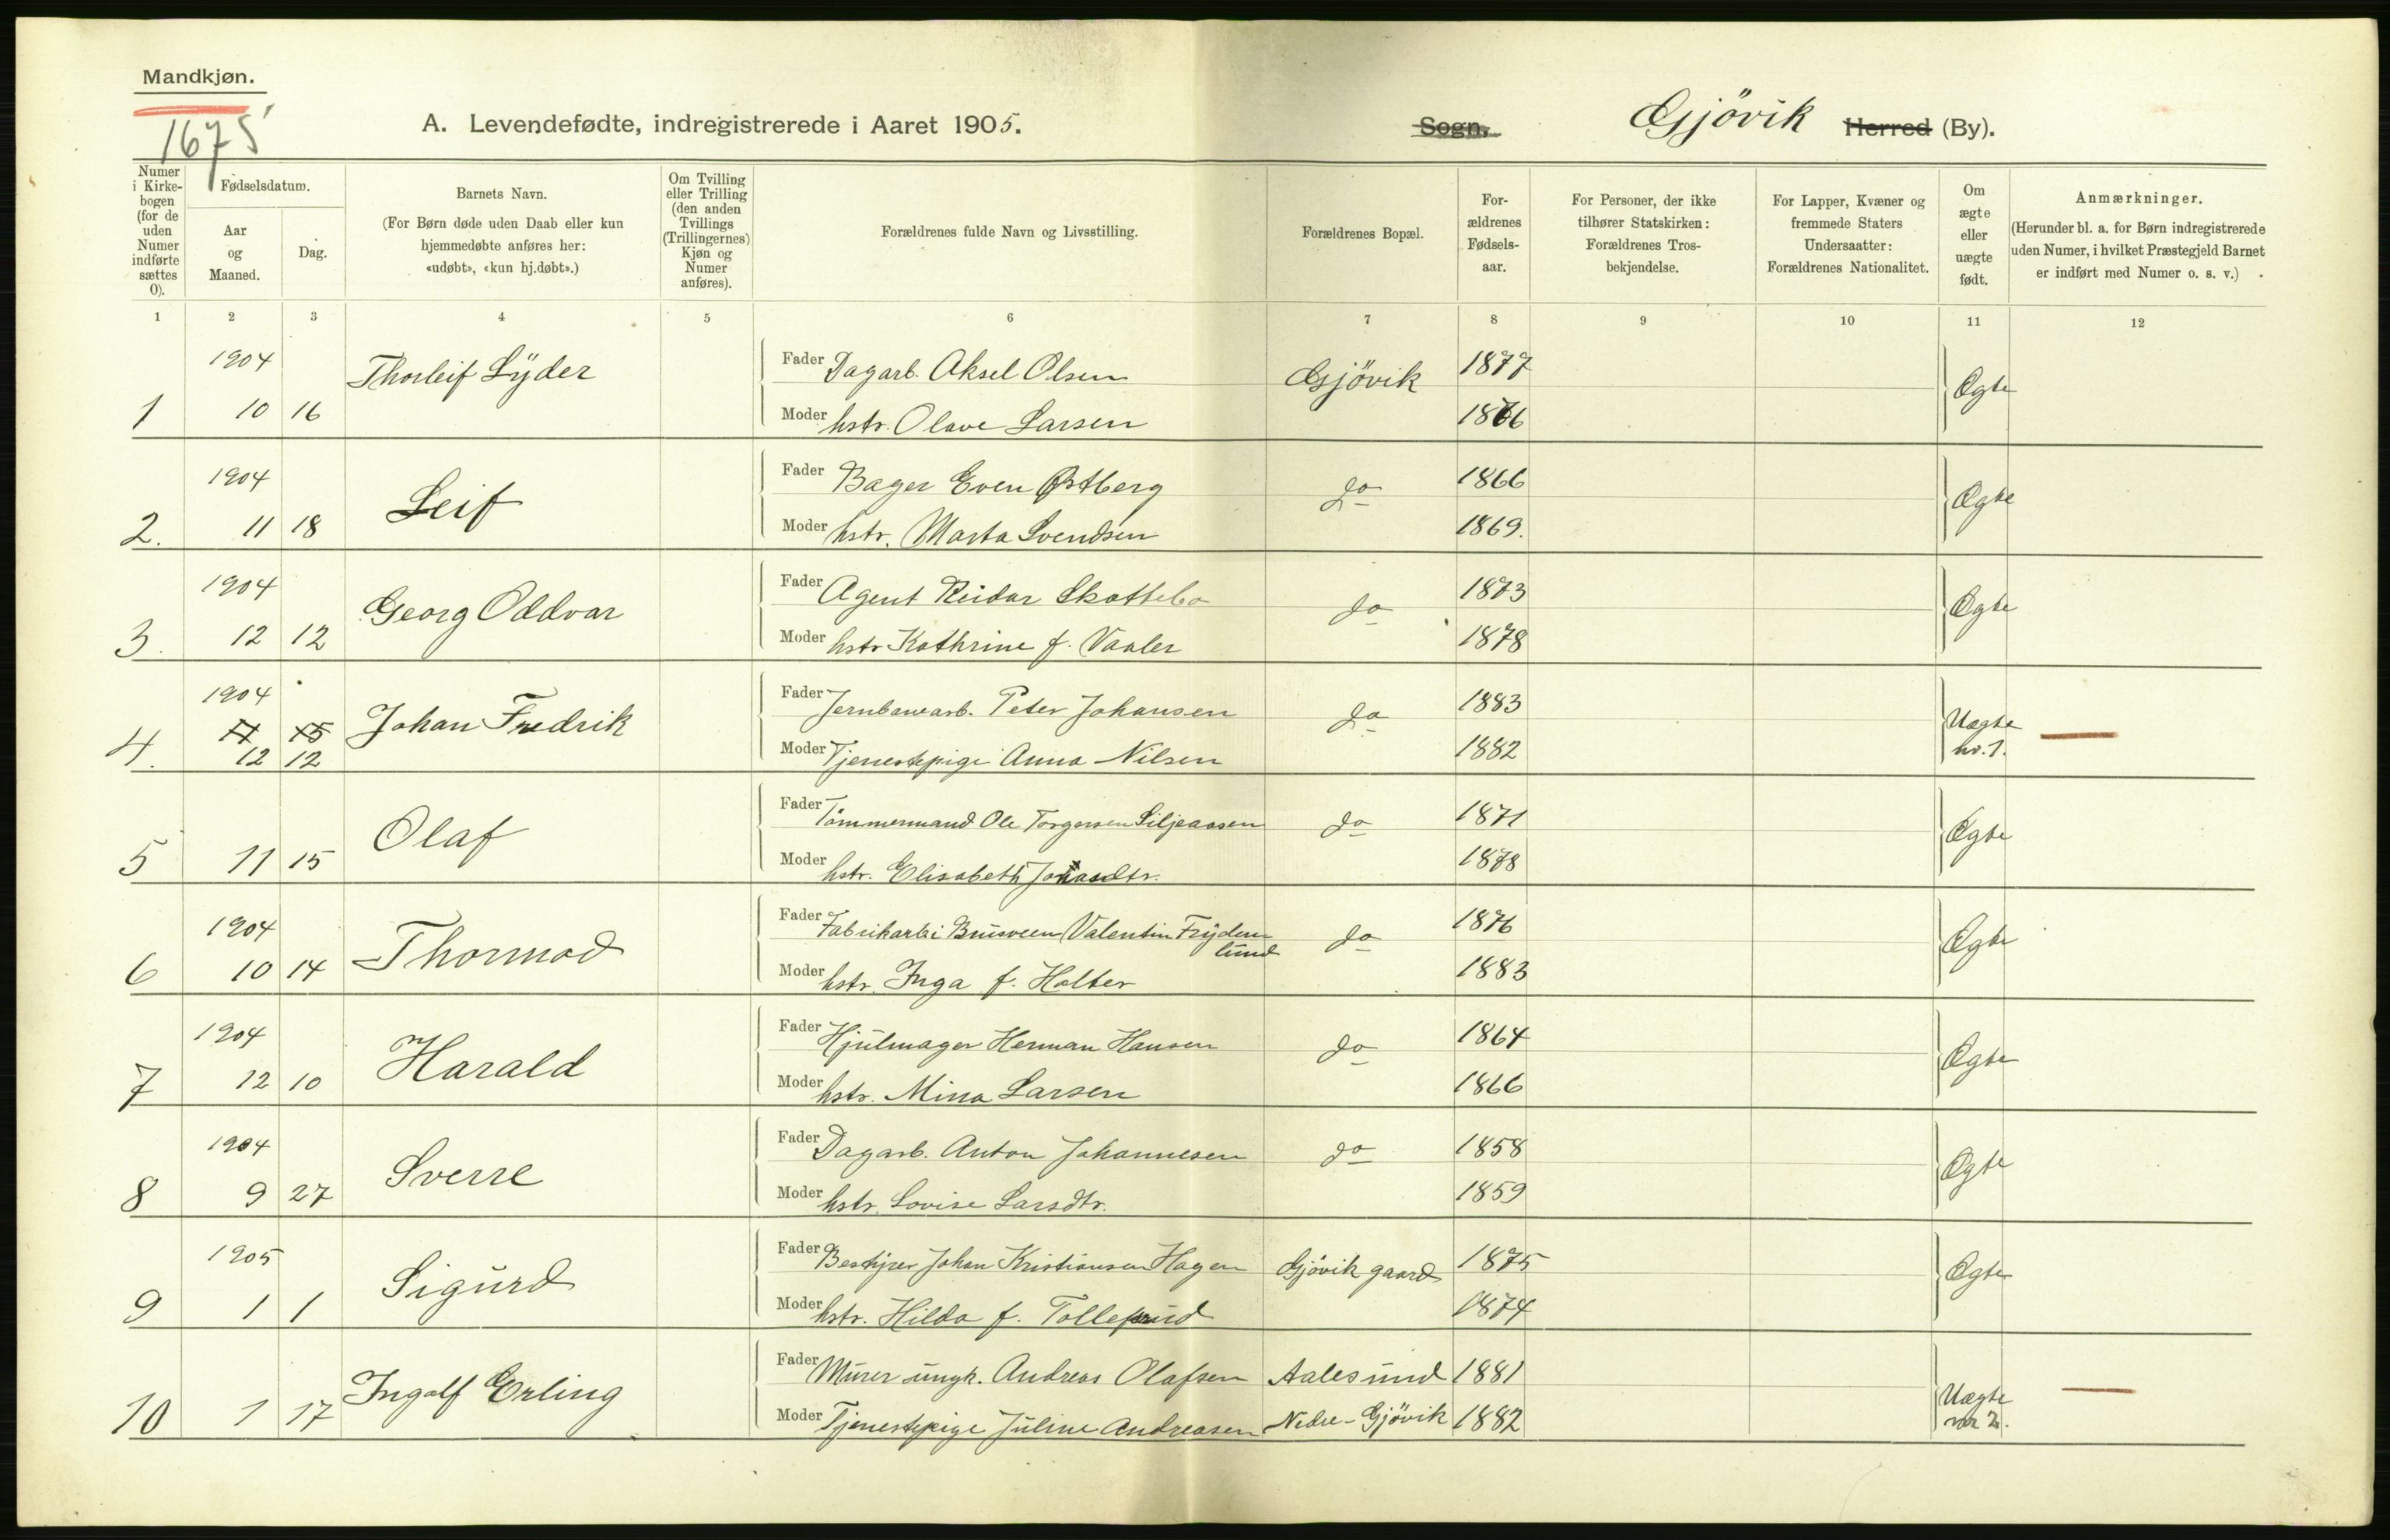 Mandkjøn.
1675
A. Levendefødte, indregistrerede i Aaret 1905.
Sogn. Gjövik Herred (By).
Numer i Kirkebogen (for de uden Numer indførte sættes 0).
Fødselsdatum.
Aar og Maaned.
Dag.
Barnets Navn.
(For Børn døde uden Daab eller kun hjemmedøbte anføres her: «udøbt», «kun hj.døbt».)
Om Tvilling eller Trilling (den anden Tvillings (Trillingernes) Kjøn og Numer anføres).
Forældrenes fulde Navn og Livsstilling.
Forældrenes Bopæl.
For-ældrenes Fødsels-aar.
For Personer, der ikke tilhører Statskirken: Forældrenes Tros-bekjendelse.
For Lapper, Kvæner og fremmede Staters Undersaatter: Forældrenes Nationalitet.
Om ægte eller uægte født.
Anmærkninger.
(Herunder bl. a. for Børn indregistrerede uden Numer, i hvilket Præstegjeld Barnet er indført med Numer o. s. v.)
1 2 3 4 5 6 7 8 9 10 11 12
1904 Thorleif Lÿder Fader Dagarb. Aksel Olsen Gjövik 1877 Ægte
1 10 16 Moder hstr. Olave Larsen 1876
1904 Leif Fader Bager Even Østberg do 1866 Ægte
2. 11 18 Moder hstr. Marta Svendsen 1869.
1904 Georg Oddvar Fader Agent Reidar Skattebo do 1873 Ægte
3. 12 12 Moder hstr Kathrine f. Vaaler 1878
1904 Johan Fredrik Fader Jernbanearb. Peter Johansen do 1883 Uægte
11 15
4. 12 12 Moder Tjenestepige Anna Nilsen 1882 nr. 1.
Olaf Fader Tömmermand Ole Torgersen Siljeaasen do 1871 Ægte
5 11 15 Moder hstr. Elisabeth 1878
1904 Thormod Fader Fabrikarbei Brusveen Valentin Frÿden
lund do 1876 Ægte
6 10 14 Moder hstr. Inga f. Holter 1883
1904 Harald Fader Hjulmager Herman Hansen do 1864 Ægte
7 12 10 Moder hstr. Mina Larsen 1866
1904 Sverre Fader Dagarb. Anton Johannesen do 1858 Ægte
8 9 27 Moder hstr. Lovise Larsdtr. 1859
1905 Sigurd Fader Bestÿrer Johan Kristiansen Hagen Gjövik gaard 1875 Ægte
9 1 1 Moder hstr. Hilda f. Tollefsrud 1874
Ingolf Erling Fader Murer ungk. Andreas Olafsen Aalesund 1881 Uægte
10 1 17 Moder Tjenestepige Juline Andreasen Nedre-Gjövik 1882 nr 2.